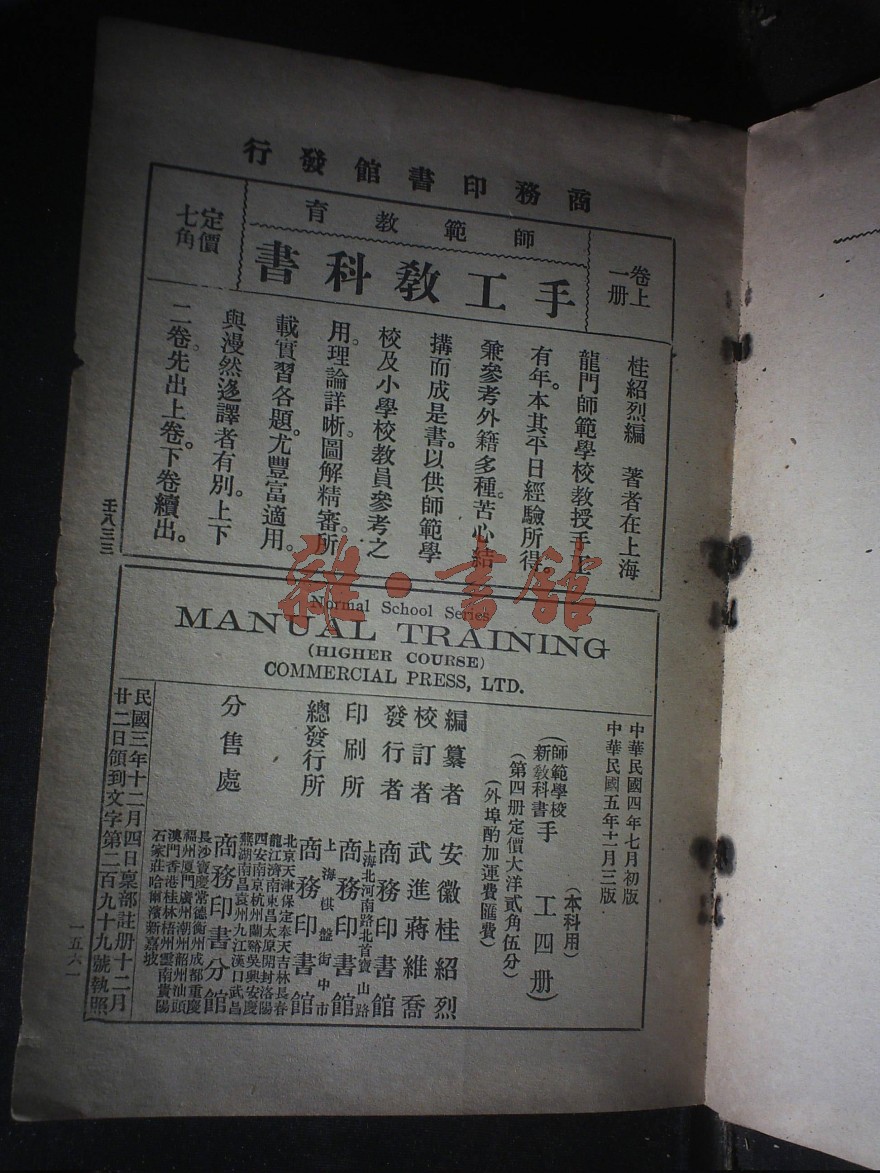 商務印書館發行
卷上
一册
師範教育
手工教科書
定價
七角
桂紹烈編　著者在上海
龍門師範學校教授手工
有年。本其平日經驗所得。
兼參考外籍多種。苦心結
搆而成是書。以供師範學
校及小學校教員參考之
用。理論詳晰。圖解精審。所
載實習各題。尤豐富適用。
與漫然迻譯者有別。上下
二卷。先出上卷。下卷續出。
壬八三三
雜·書館
Normal School Series
MANUAL TRAINING
(HIGHER COURSE)
COMMERCIAL PRESS, LTD.
中華民國四年七月初版
中華民國五年十一月三版
(本科用)
(師範學校
新教科書 手工四册)
(第四册定價大洋貳角伍分)
(外埠酌加運費匯費)
編纂者　安徽桂紹烈
校訂者　武進蔣維喬
發行者　商務印書館
上海北河南路北首寶山路
印刷所　商務印書館
上海棋盤街中市
總發行所　商務印書館
北京天津保定奉天吉林長春
龍江濟南東昌太原開封洛陽
西安南京杭州蘭谿吳興安慶
蕪湖南昌袁州九江漢口武昌
分售處　商務印書分館
長沙寶慶常德衡州成都重慶
福州廈門廣州潮州韶州汕頭
澳門香港桂林梧州雲南貴陽
石家莊哈爾濱新嘉坡
民國三年十二月四日稟部註册十二月
廿二日領到文字第二百九十九號執照
一五六一